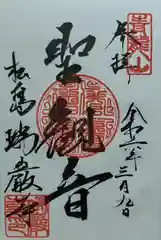 青龍山
奉拝
令和二年三月九日
聖観音
松島 瑞巌寺